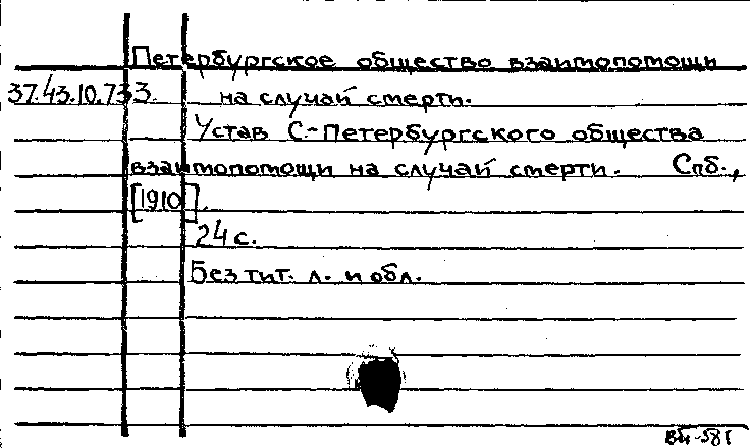 Петербургское общество взаимопомощи
37.43.10.733. на случай смерти.
Устав С-Петербургского общества
взаимопомощи на случай смерти. Спб.,
[1910].
24 с.
Без тит. л. и обл.